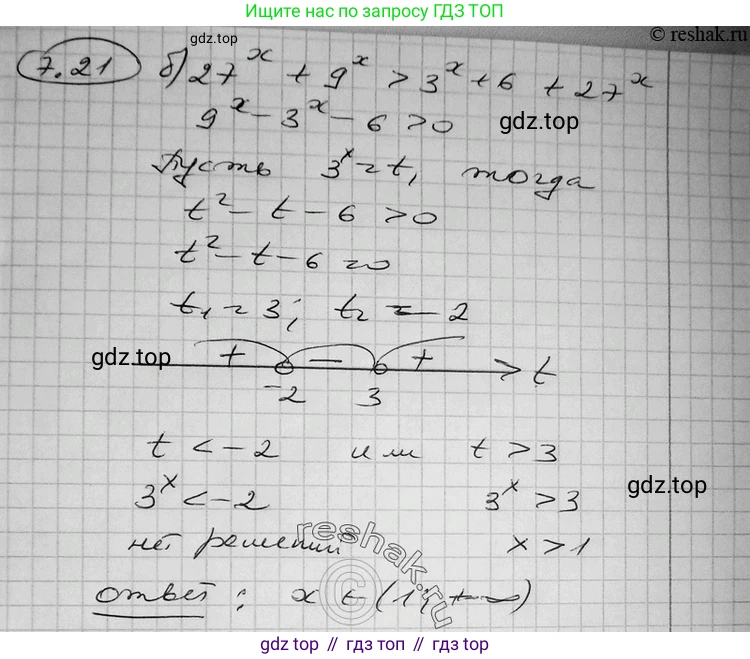 Ищите нас по запросу ГДЗ ТОП
© reshak.ru
gdz.top
7.21 б) 27^x + 9^x > 3^x + 6 + 27^x
9^x - 3^x - 6 > 0 gdz.top
Пусть 3^x = t, тогда
t^2 - t - 6 > 0
t^2 - t - 6 = 0
t1 = 3; t2 = -2
gdz.top + - + t
-2 3
t < -2 или t > 3
3^x < -2 3^x > 3 gdz.top
нет решений x > 1
reshak.ru
©
ответ: x ∈ (1; +∞)
gdz top // гдз топ // gdz top